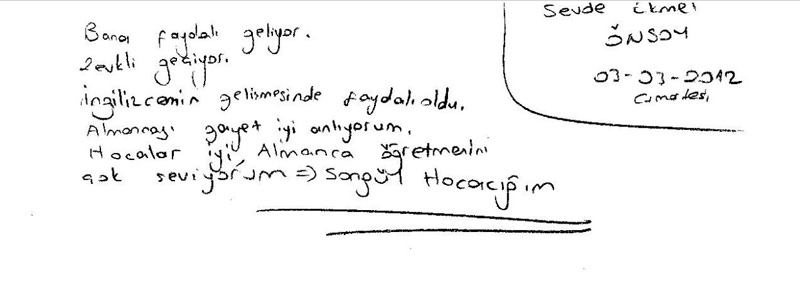 Bana faydalı geliyor.
Zevkli geçiyor.
İngilizcemin gelişmesinde faydalı oldu.
Almancayı gayet iyi anlıyorum.
Hocalar iyi, Almanca öğretmenini
çok seviyorum => Songül Hocacığım
Sevde İkmel
ÖNSOY
03-03-2012
Cumartesi